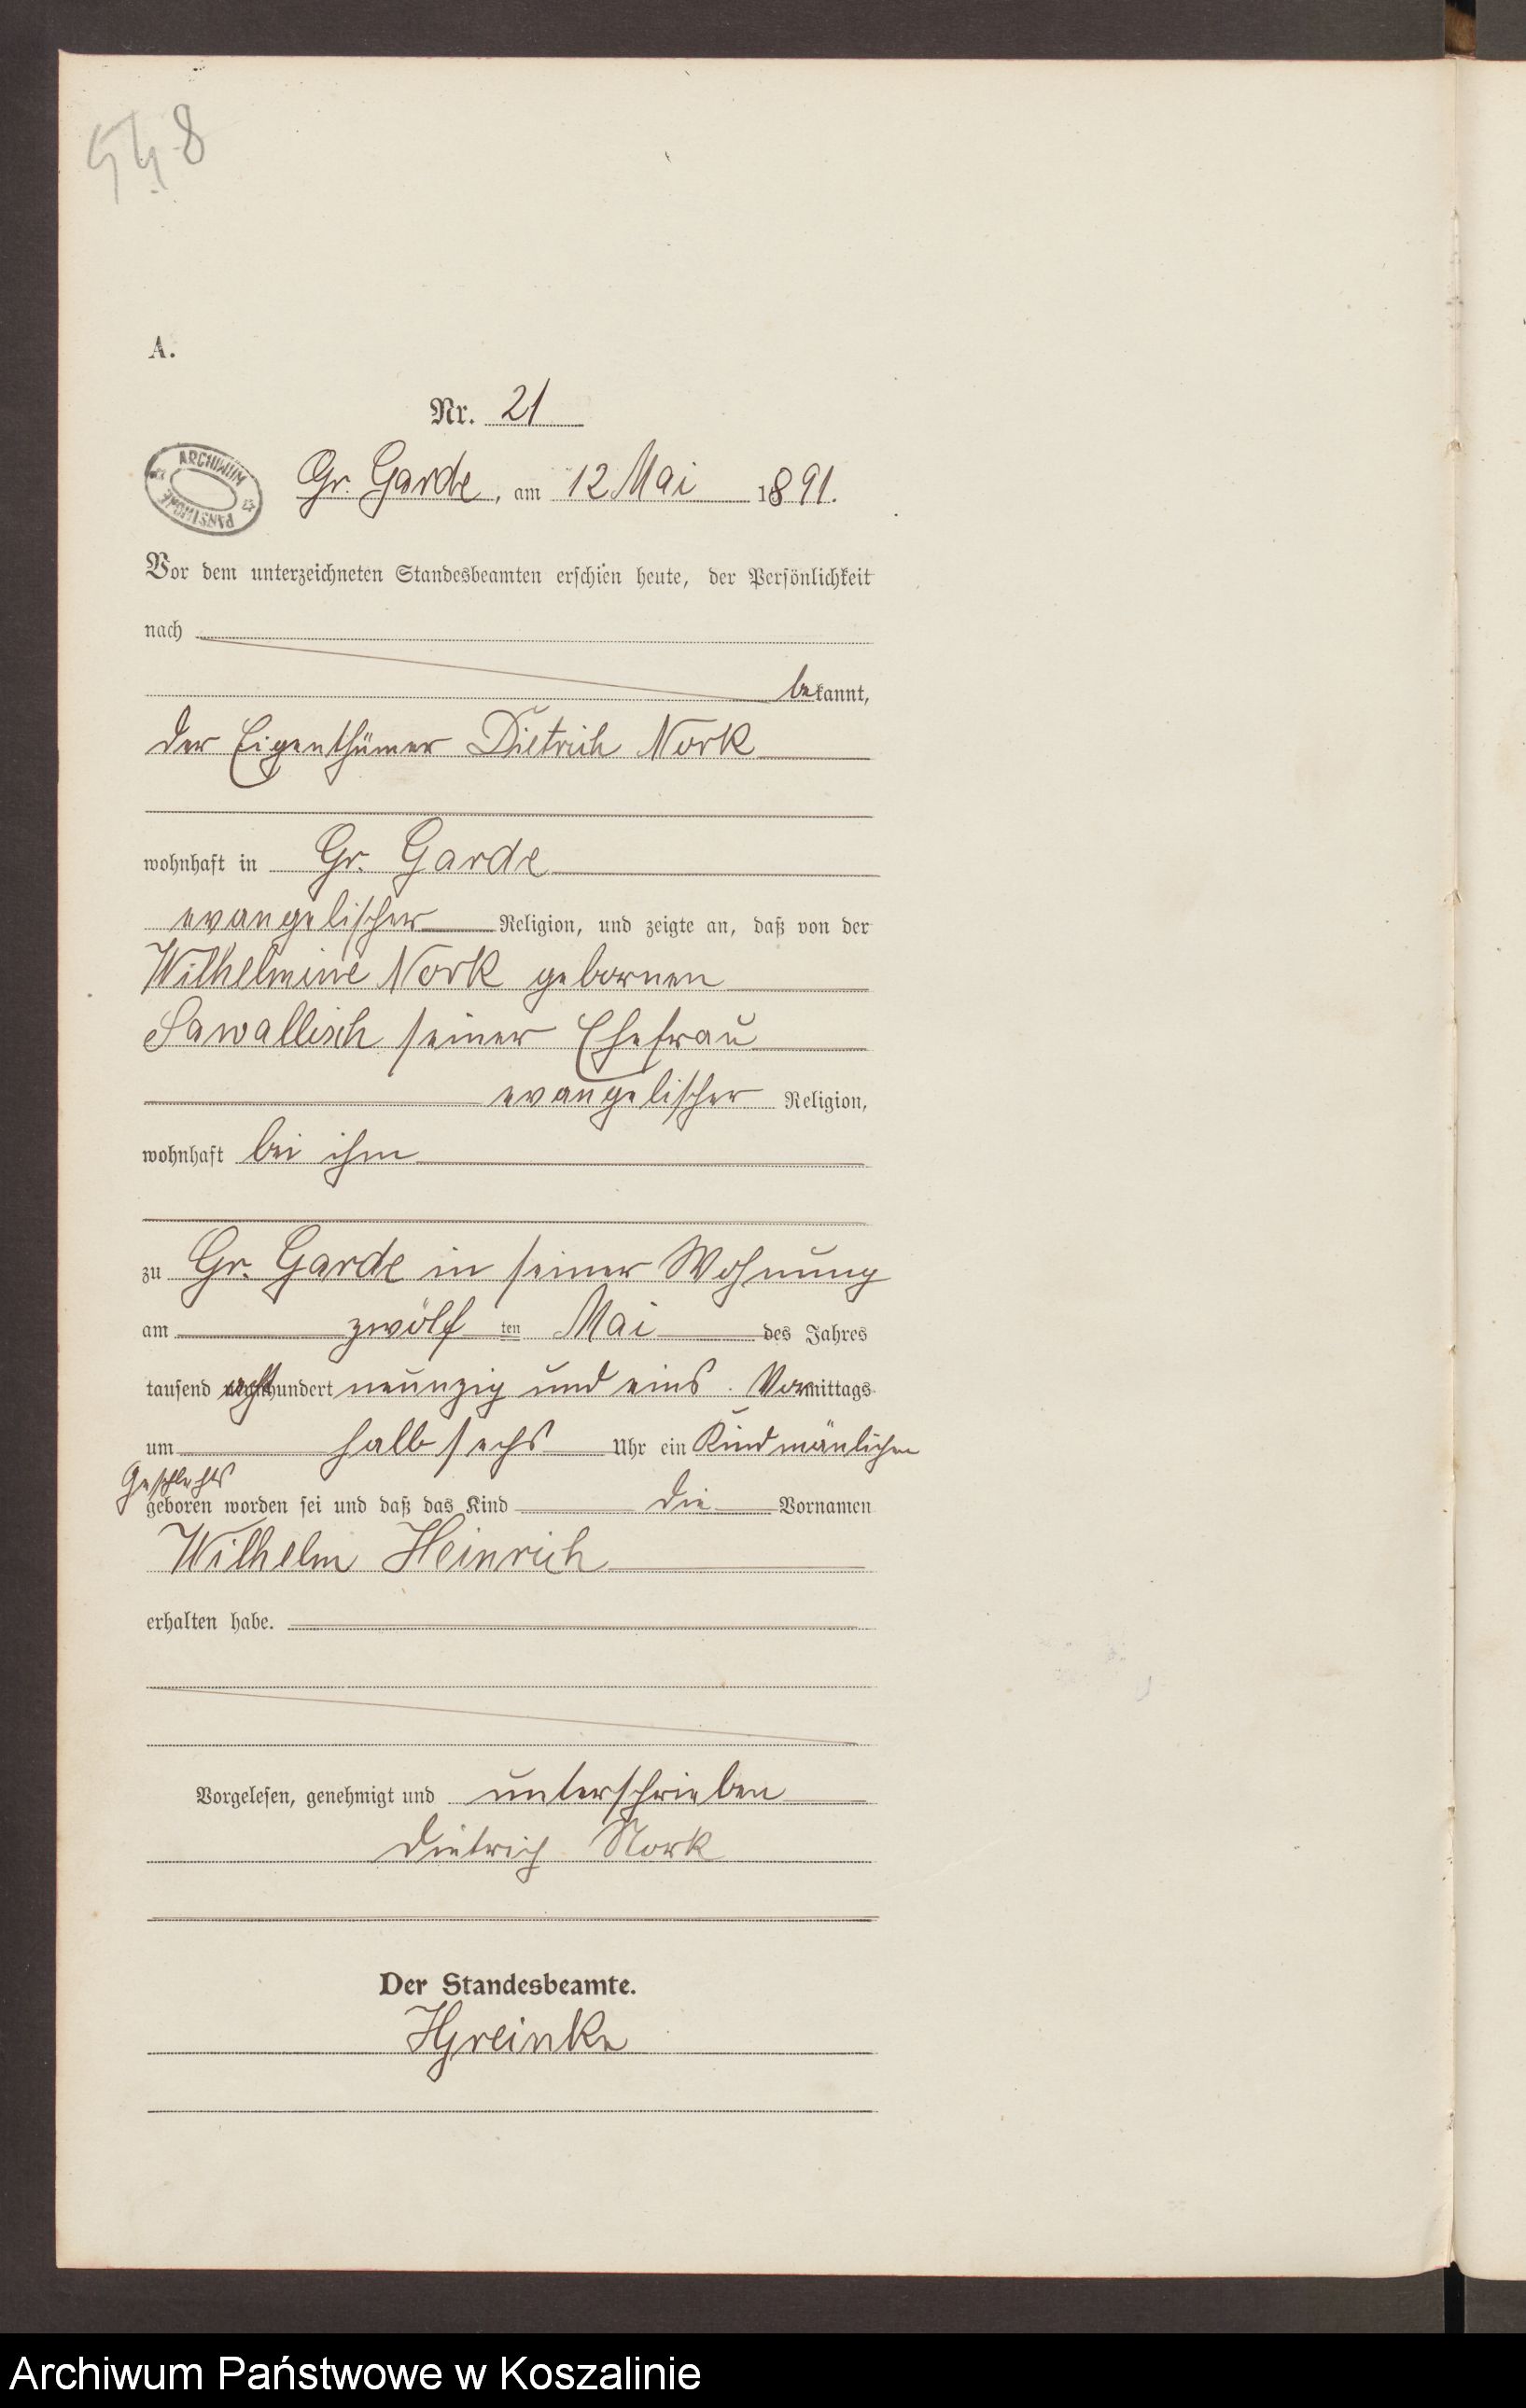 548
A.
Nr. 21
ARCHIWUM
PAŃSTWOWE
Gr. Garde, am 12 Mai 1891.
Vor dem unterzeichneten Standesbeamten erschien heute, der Persönlichkeit
nach
bekannt,
der Eigenthümer Dietrich Nork
wohnhaft in Gr. Garde
evangelischer Religion, und zeigte an, daß von der
Wilhelmine Nork gebornen
Sawallisch seiner Ehefrau
evangelischer Religion,
wohnhaft bei ihm
zu Gr. Garde in seiner Wohnung
am zwölf ten Mai des Jahres
tausend achthundert neunzig und eins. Vormittags
um halb sechs Uhr ein Kind mänlichen
Geschlechts
geboren worden sei und daß das Kind die Vornamen
Wilhelm Heinrich
erhalten habe.
Vorgelesen, genehmigt und unterschrieben
Dietrich Nork
Der Standesbeamte.
Archiwum Państwowe w Koszalinie